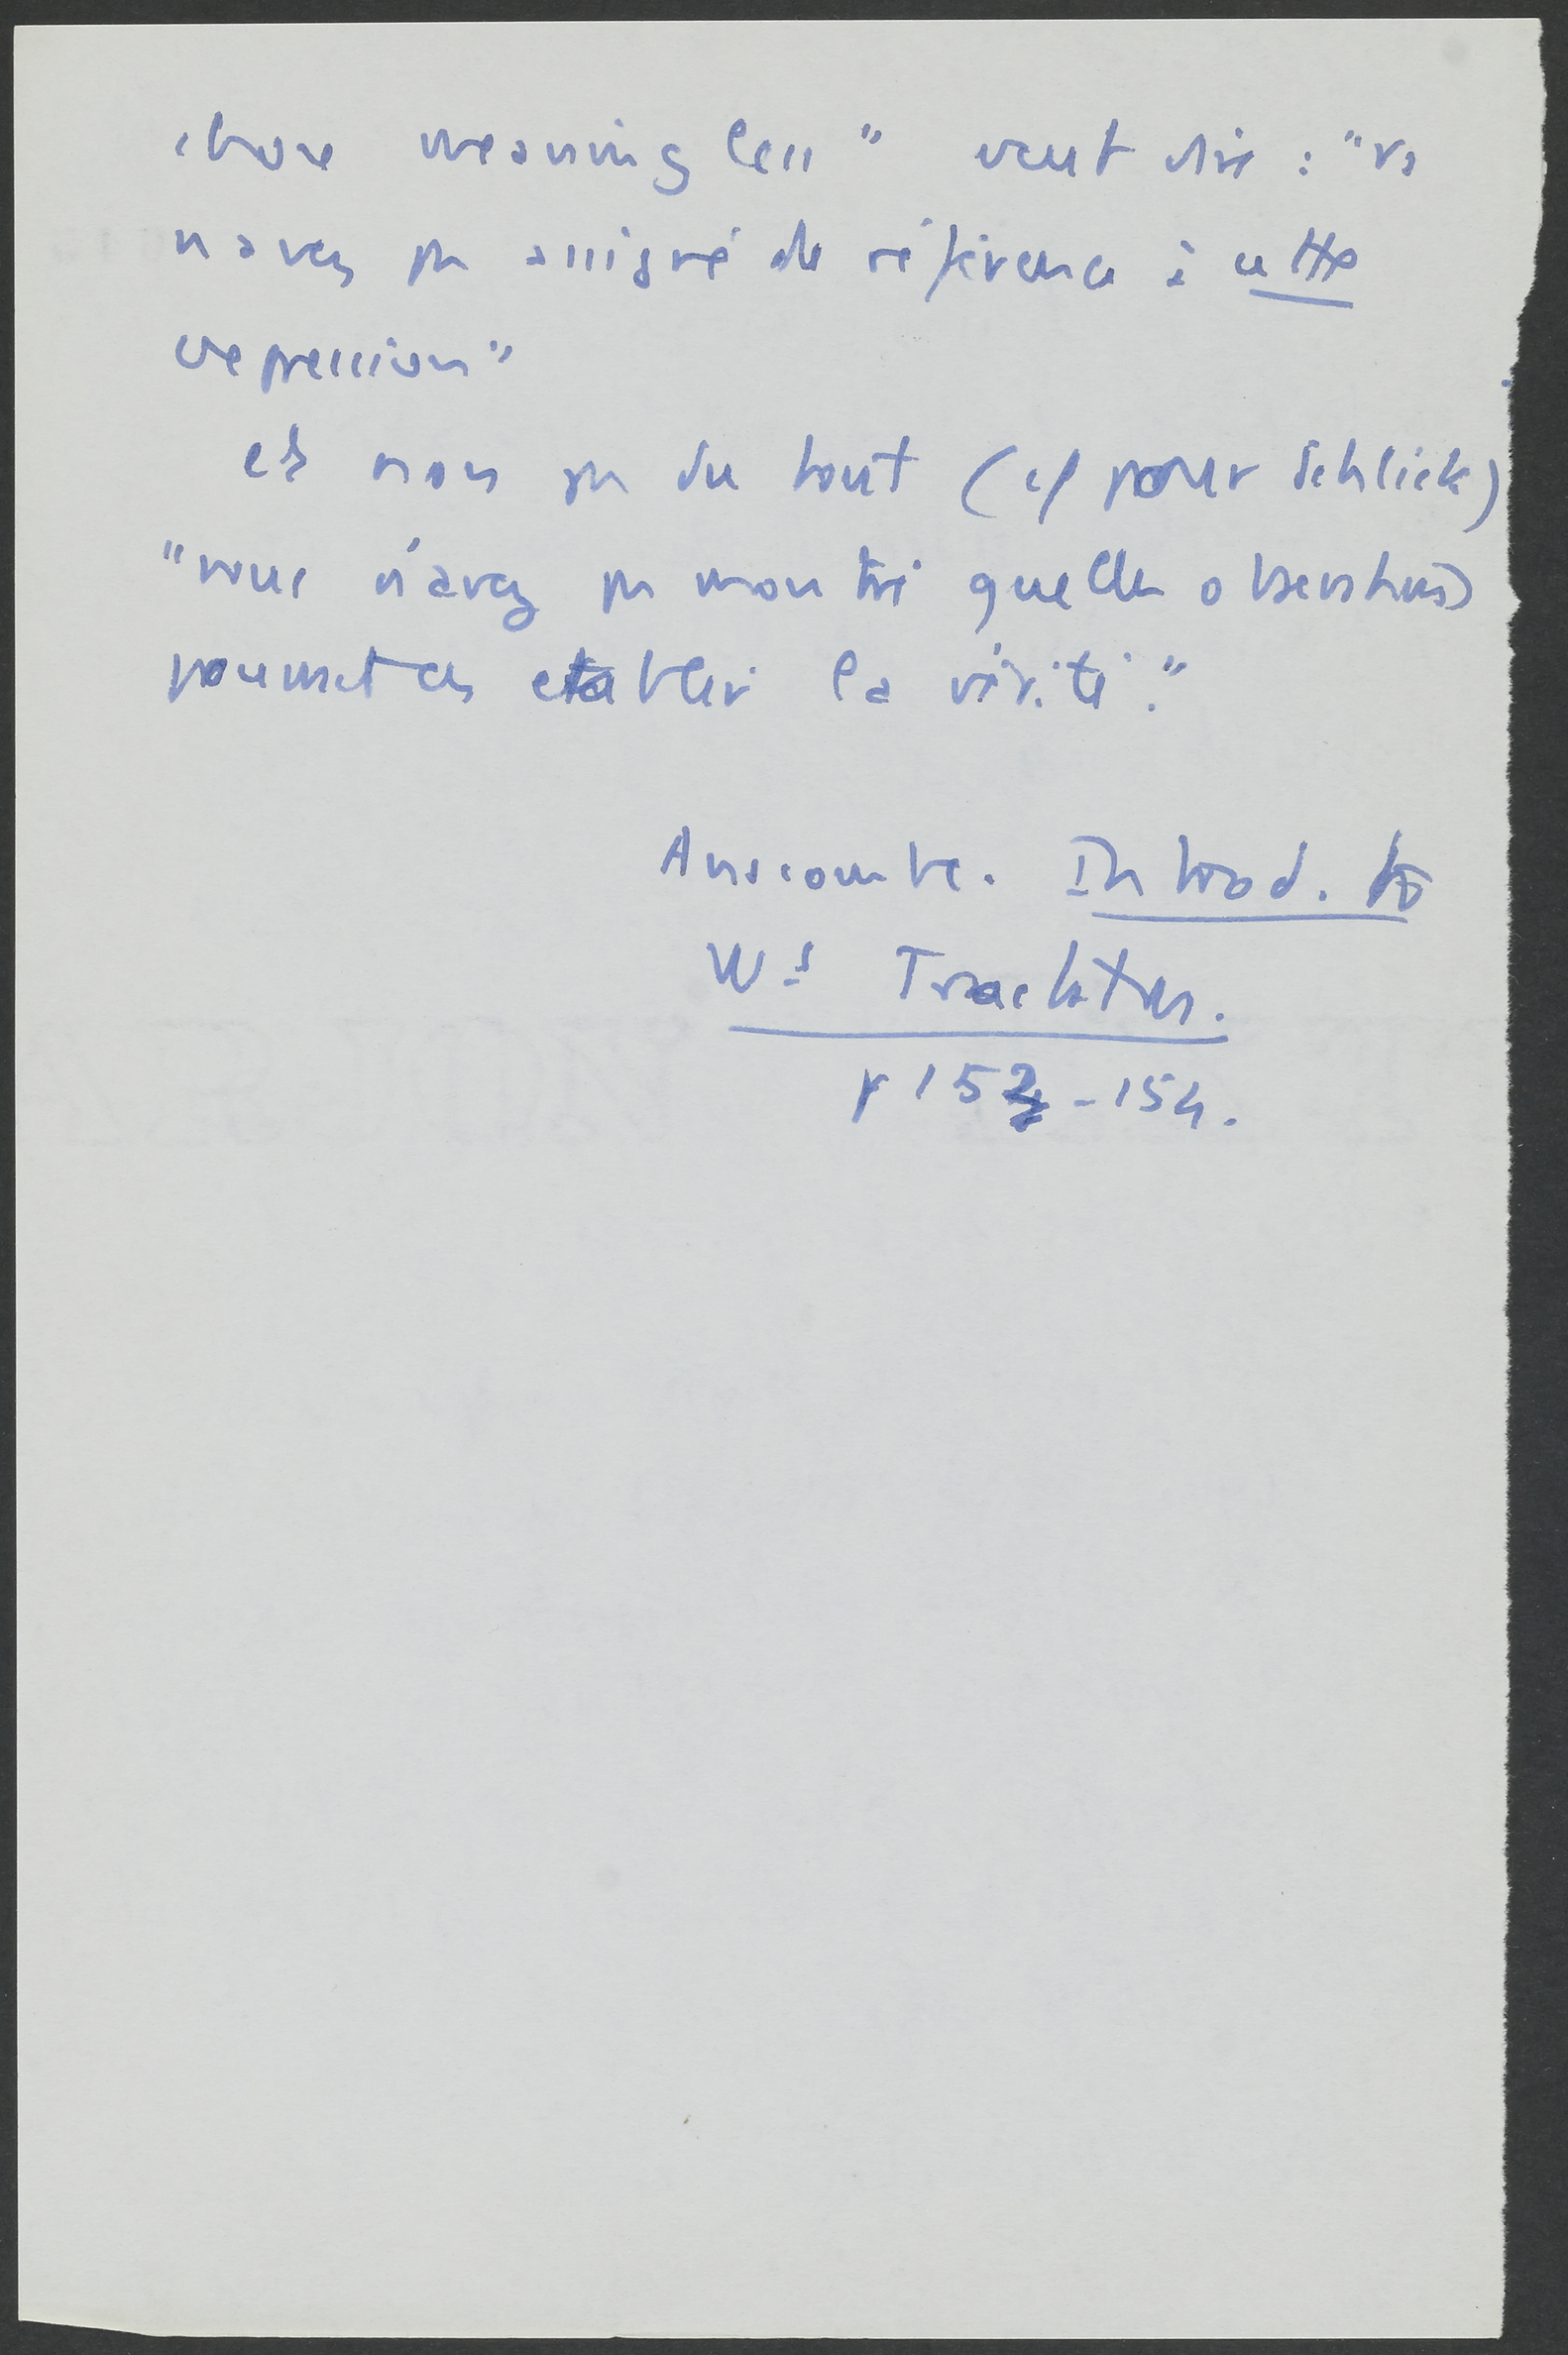 chose meaningless" veut dire : "vs
n'avez pas assigné de référence à cette
expression"
et non pas du tout (cf pour Schlick)
"vous n'avez pas montré quelles observations
pourraient en établir la vérité."
Anscombe. Introd. to
W's Tractatus.
p 152-154.